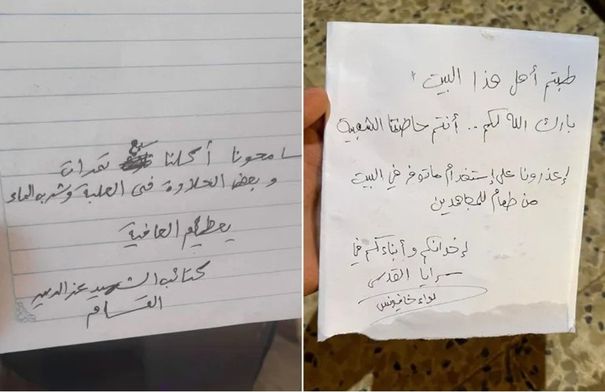 سامحونا أكلنا سبع تمرات
و بعض الحلاوة فى العلبة وشربه الماء
يعطيكم العافية
كتائب الشهيد عزالدين
القسام
طبتم أهل هذا البيت
بارك الله لكم .. أنتم حاضنتنا الشعبية
إعذرونا على إستخدام ماتوفر في البيت
من طعام للمجاهدين
إخوانكم و أبناءكم في
سرايا القدس
لواء خانيونس